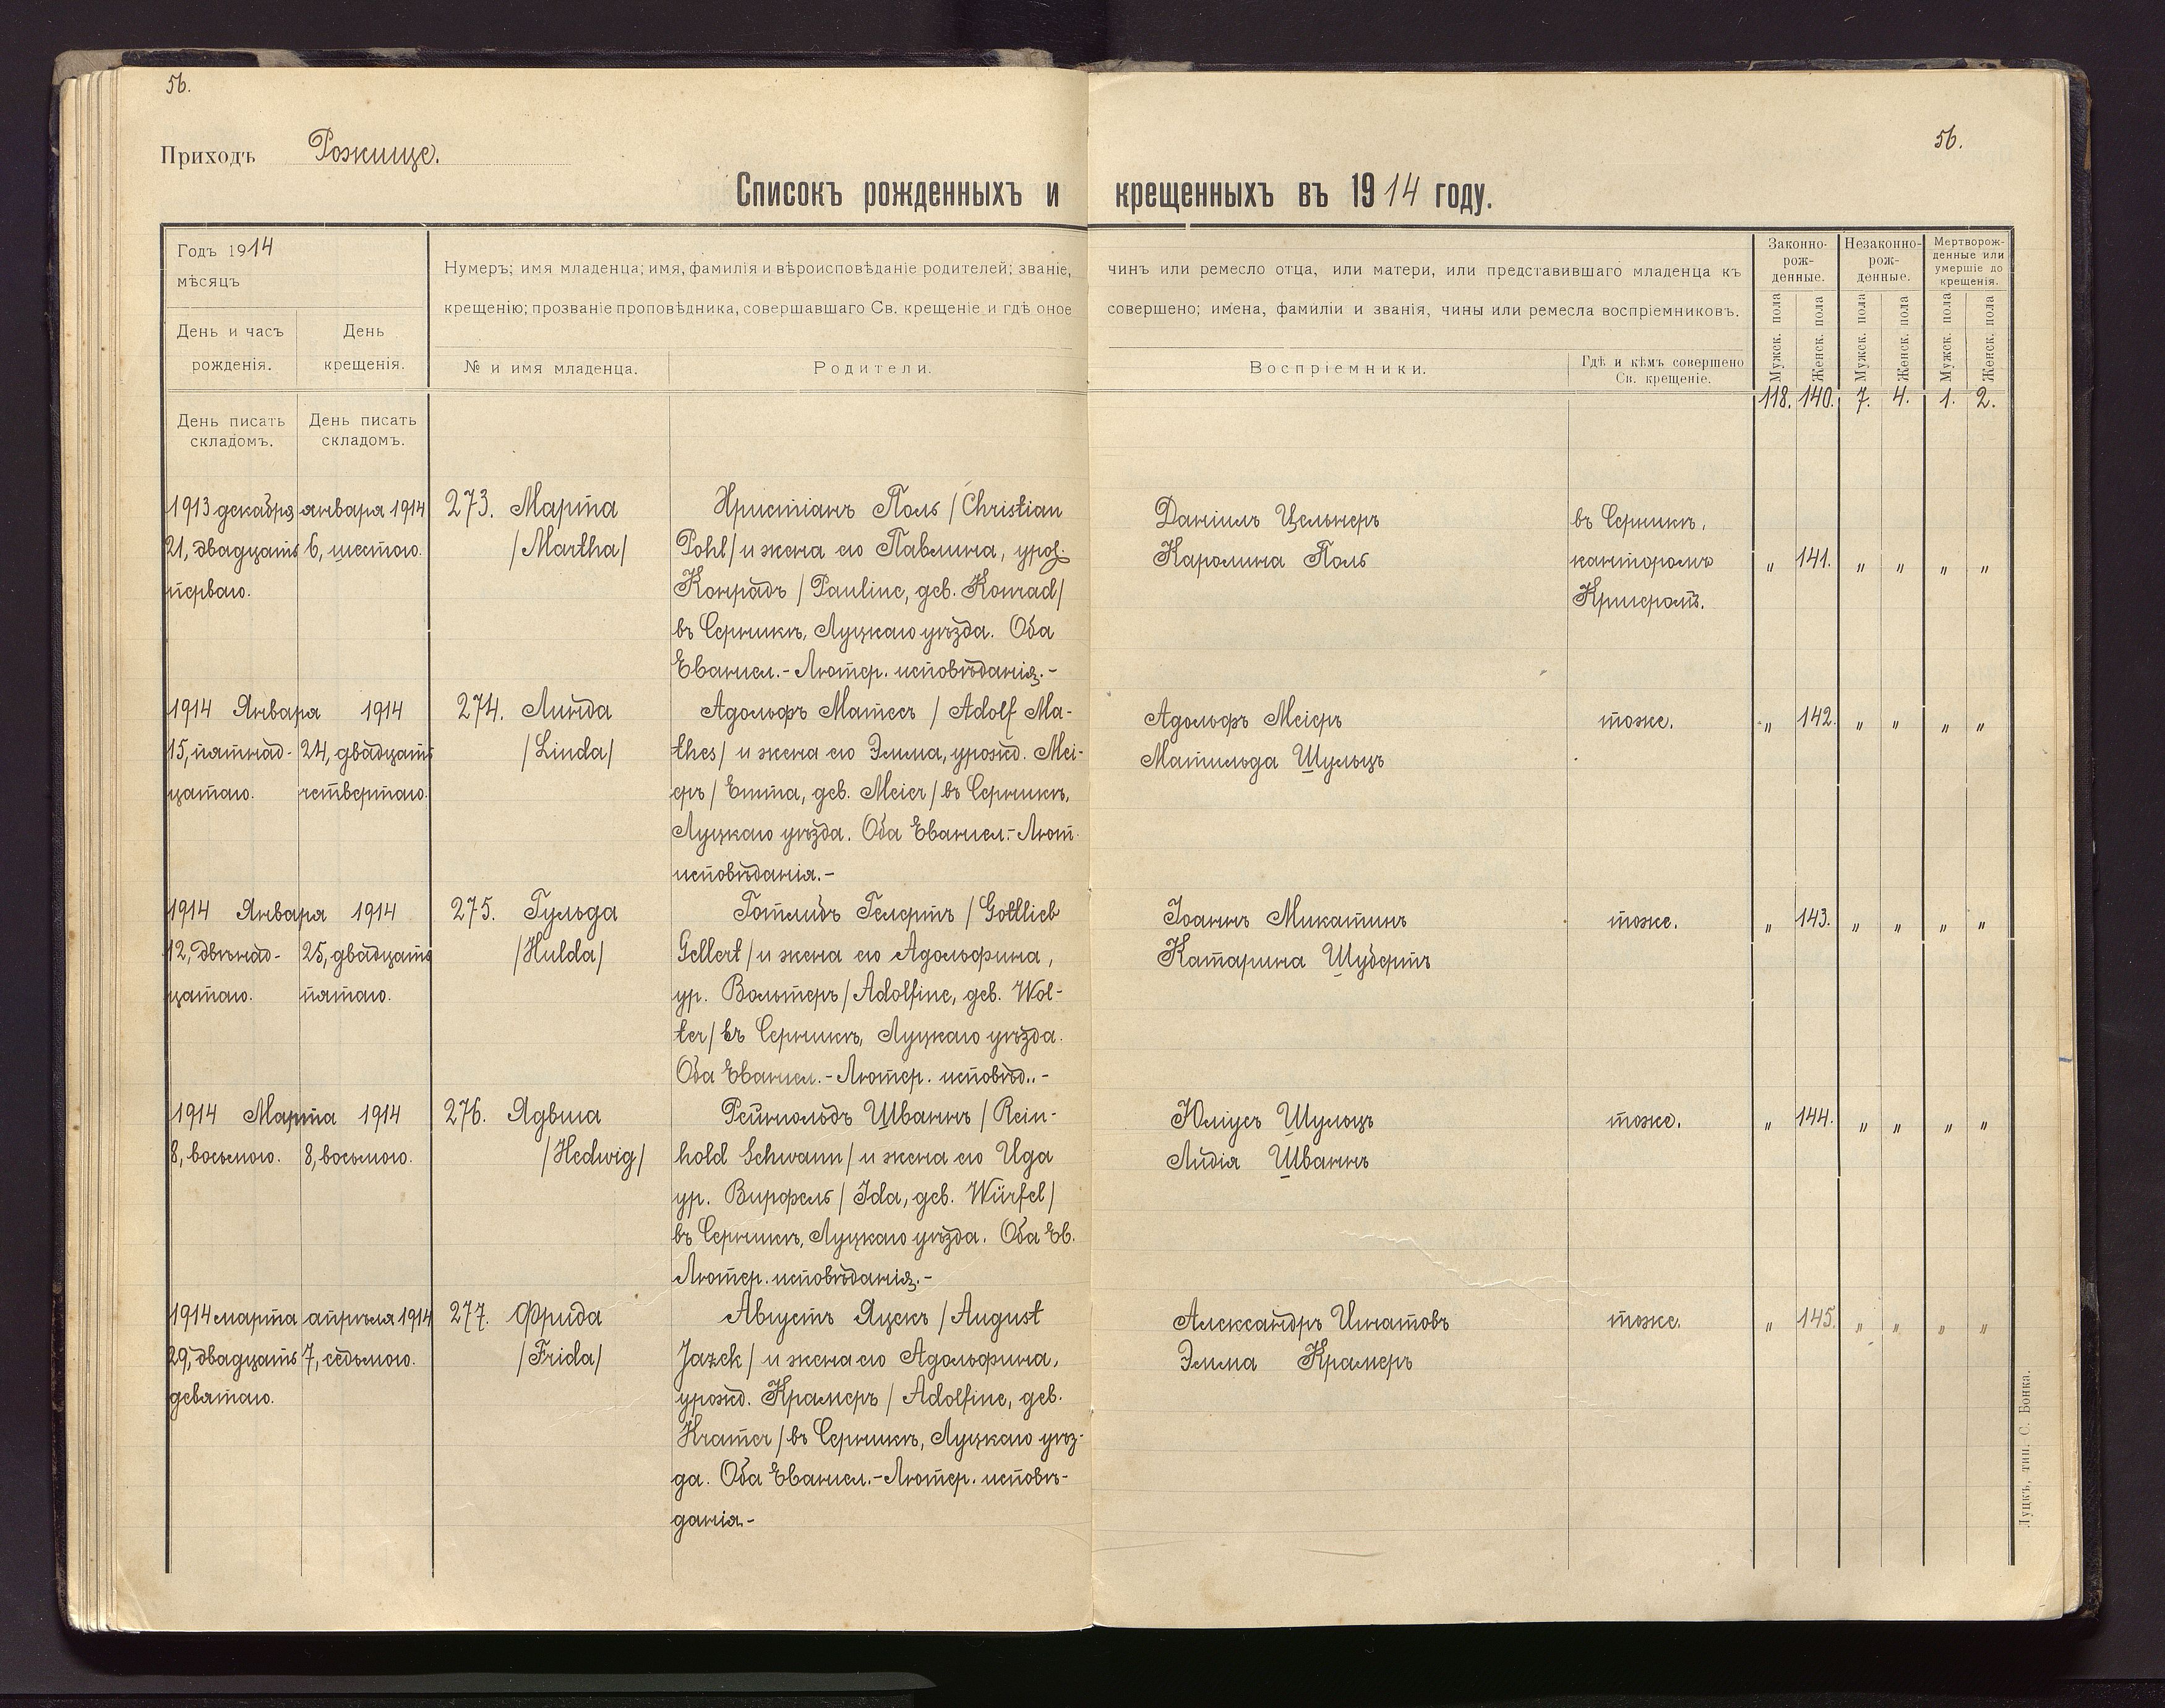 56.
56.
Приходъ Рожище.
Списокъ рожденныхъ и крещенныхъ въ 1914 году.
Годъ 1914
мѣсяцъ
День и часъ
рожденія.
День
крещенія.
Нумеръ; имя младенца; имя, фамилія и вѣроисповѣданіе родителей; званіе, чинъ или ремесло отца, или матери, или представившаго младенца къ
крещенію; прозваніе проповѣдника, совершавшаго Св. крещеніе и гдѣ оное совершено; имена, фамиліи и званія, чины или ремесла воспріемниковъ.
№ и имя младенца.
Родители.
Воспріемники.
Гдѣ и кѣмъ совершено
Св. крещеніе.
Законно-
рож-
денные.
Незаконно-
рож-
денные.
Мертворож-
денные или
умершіе до
крещенія.
Мужск. пола
Женск. пола
Мужск. пола
Женск. пола
Мужск. пола
Женск. пола
118. 140. 7. 4. 1. 2.
День писать
складомъ.
День писать
складомъ.
1913 декабря
21, двадцать
перваго.
января 1914
6, шестого.
273. Марта
/Martha/
Христіанъ Поль /Christian
Pohl/ и жена его Павлина, урож.
Конрадъ /Pauline, geb. Konrad/
въ Серникѣ, Луцкаго уѣзда. Оба
Евангел.-Лютер. исповѣданія.-
Даніилъ Цельнеръ
Каролина Поль
въ Серникѣ,
канторомъ
Кригеромъ.
„ 141. „ „ „ „
1914 Января 1914
15, пятнад-
цатаго.
24, двадцать
четвертаго.
274. Линда
/Linda/
Адольфъ Матесъ /Adolf Ma-
thes/ и жена его Эмма, урожд. Меі-
еръ /Emma, geb. Meier/ въ Серникѣ,
Луцкаго уѣзда. Оба Евангел.-Лют.
исповѣданія.-
Адольфъ Меіеръ
Матильда Шульцъ
тоже.
„ 142. „ „ „ „
1914 Января 1914
12, двѣнад-
цатаго.
25, двадцать
пятаго.
275. Гульда
/Hulda/
Готлибъ Гелертъ /Gottlieb
Gellert/ и жена его Адольфина,
ур. Вольтеръ /Adolfine, geb. Wol-
ter/ въ Серникѣ, Луцкаго уѣзда.
Оба Евангел.-Лютер. исповѣд..-
Іоаннъ Микатинъ
Катарина Шубертъ
тоже.
„ 143. „ „ „ „
1914 Марта 1914
8, восьмого.
8, восьмого.
276. Ядвига
/Hedwig/
Рейнгольдъ Шваннъ /Rein-
hold Schwann/ и жена его Ида
ур. Вирфель /Ida, geb. Würfel/
въ Серникѣ, Луцкаго уѣзда. Оба Ев.
Лютер. исповѣданія.-
Юліусъ Шульцъ
Лидія Шваннъ
тоже.
„ 144. „ „ „ „
1914 марта
29, двадцать
девятаго.
апрѣля 1914
7, седьмого.
277. Фрида
/Frida/
Августъ Яцекъ /August
Jazek/ и жена его Адольфина,
урожд. Крамеръ /Adolfine, geb.
Kramer/ въ Серникѣ, Луцкаго уѣз-
да. Оба Евангел.-Лютер. исповѣ-
данія.-
Александръ Игнатовъ
Эмма Крамеръ
тоже.
„ 145. „ „ „ „
Луцкъ, тип. С. Бонка.